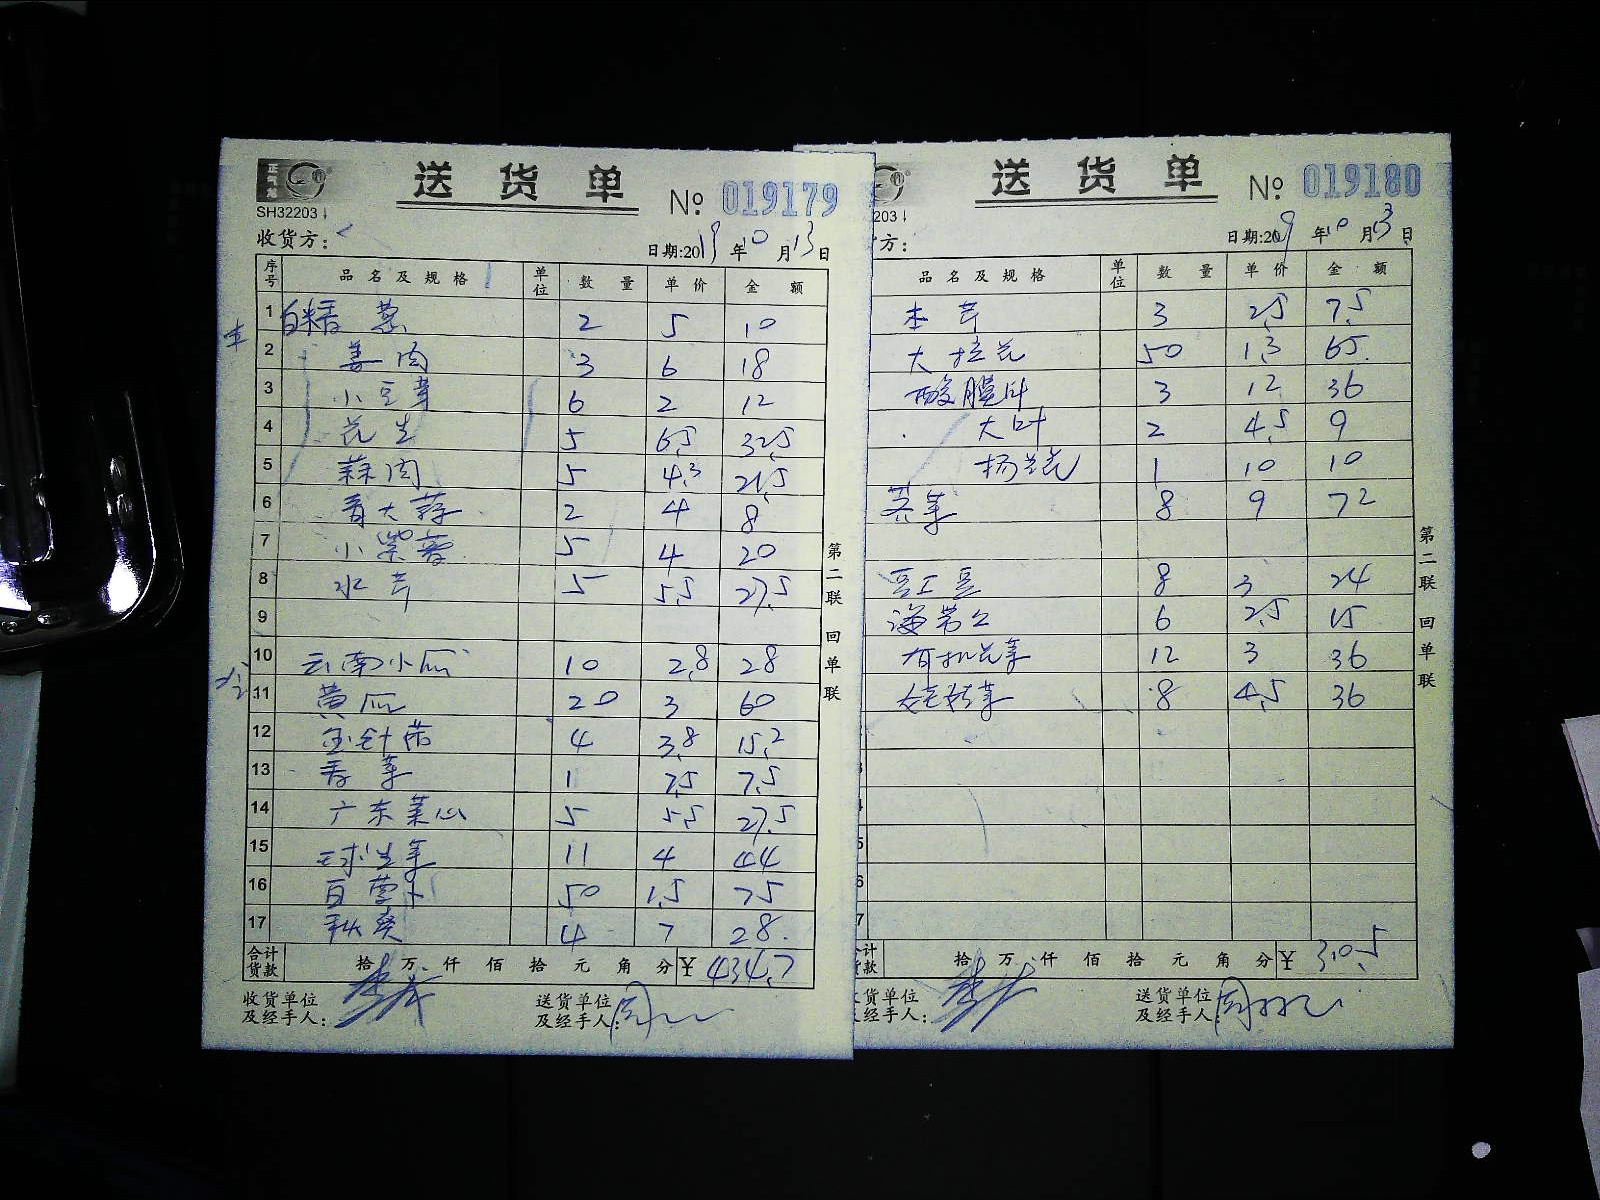 正气龙
送货单
№ 019179
SH32203
收货方：
日期:2019年10月13日
序号 品名及规格 单位 数量 单价 金额
1 白糖葱 2 5 10
2 姜肉 3 6 18
3 小豆芽 6 2 12
4 花生 5 6.5 32.5
5 蒜肉 5 4.3 21.5
6 青大蒜 2 4 8
7 小紫 5 4 20
8 水芹 5 5.5 27.5
9
10 云南小瓜 10 2.8 28
11 黄瓜 20 3 60
12 金针菇 4 3.8 15.2
13 香菜 1 7.5 7.5
14 广东菜心 5 5.5 27.5
15 球生菜 11 4 44
16 白萝卜 50 1.5 75
17 秋葵 4 7 28
合计货款 拾 万 仟 佰 拾 元 角 分 ¥ 434.7
收货单位及经手人：
送货单位及经手人：周
第二联 回单联
送货单
№ 019180
203
方：
日期:2019年10月13日
品名及规格 单位 数量 单价 金额
本芹 3 2.5 7.5
大拉花 50 1.3 65
酸膜叶 3 12 36
大叶 2 4.5 9
杨兰花 1 10 10
茶菜 8 9 72
豆工豆 8 3 24
海带 6 2.5 15
有机花菜 12 3 36
菜 8 4.5 36
合计货款 拾 万 仟 佰 拾 元 角 分 ¥ 310.5
货单位及经手人：
送货单位及经手人：周
第二联 回单联